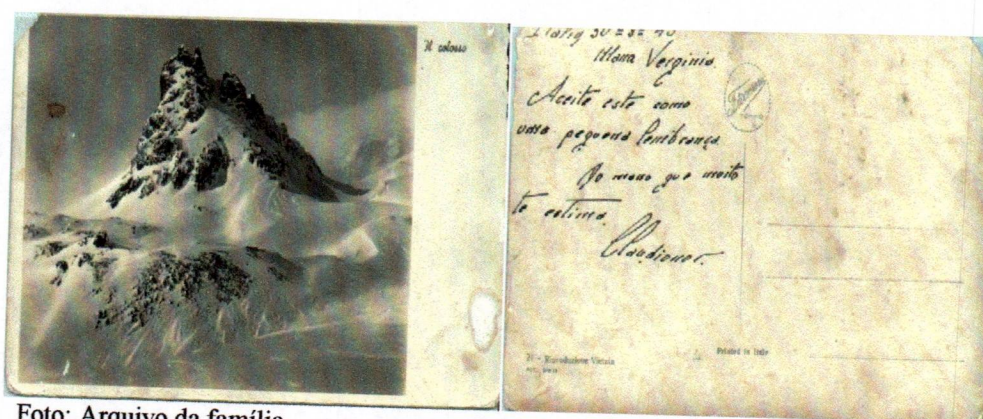 Il colosso
Mana Verginia.
Aceite este como
uma pequena lembrança
Do mano que muito
te estima.
Claudionor.
21 - Riproduzione Vietata
Printed in Italy
Foto: Arquivo da família